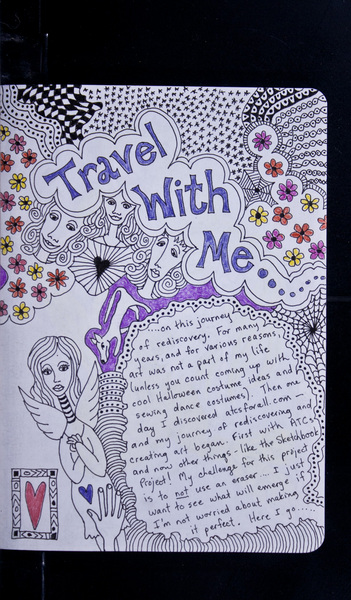 Travel
With
Me.....
....on this journey
of rediscovery. For many
years, and for various reasons,
art was not a part of my life
(unless you count coming up with
cool Halloween costume ideas and
sewing dance costumes). Then one
day I discovered atcsforall.com —
and my journey of rediscovering and
creating art began. First with ATC's
and now other things - like the Sketchbook
Project! My challenge for this project
is to not use an eraser.... I just
want to see what will emerge if
I'm not worried about making
it perfect. Here I go.....